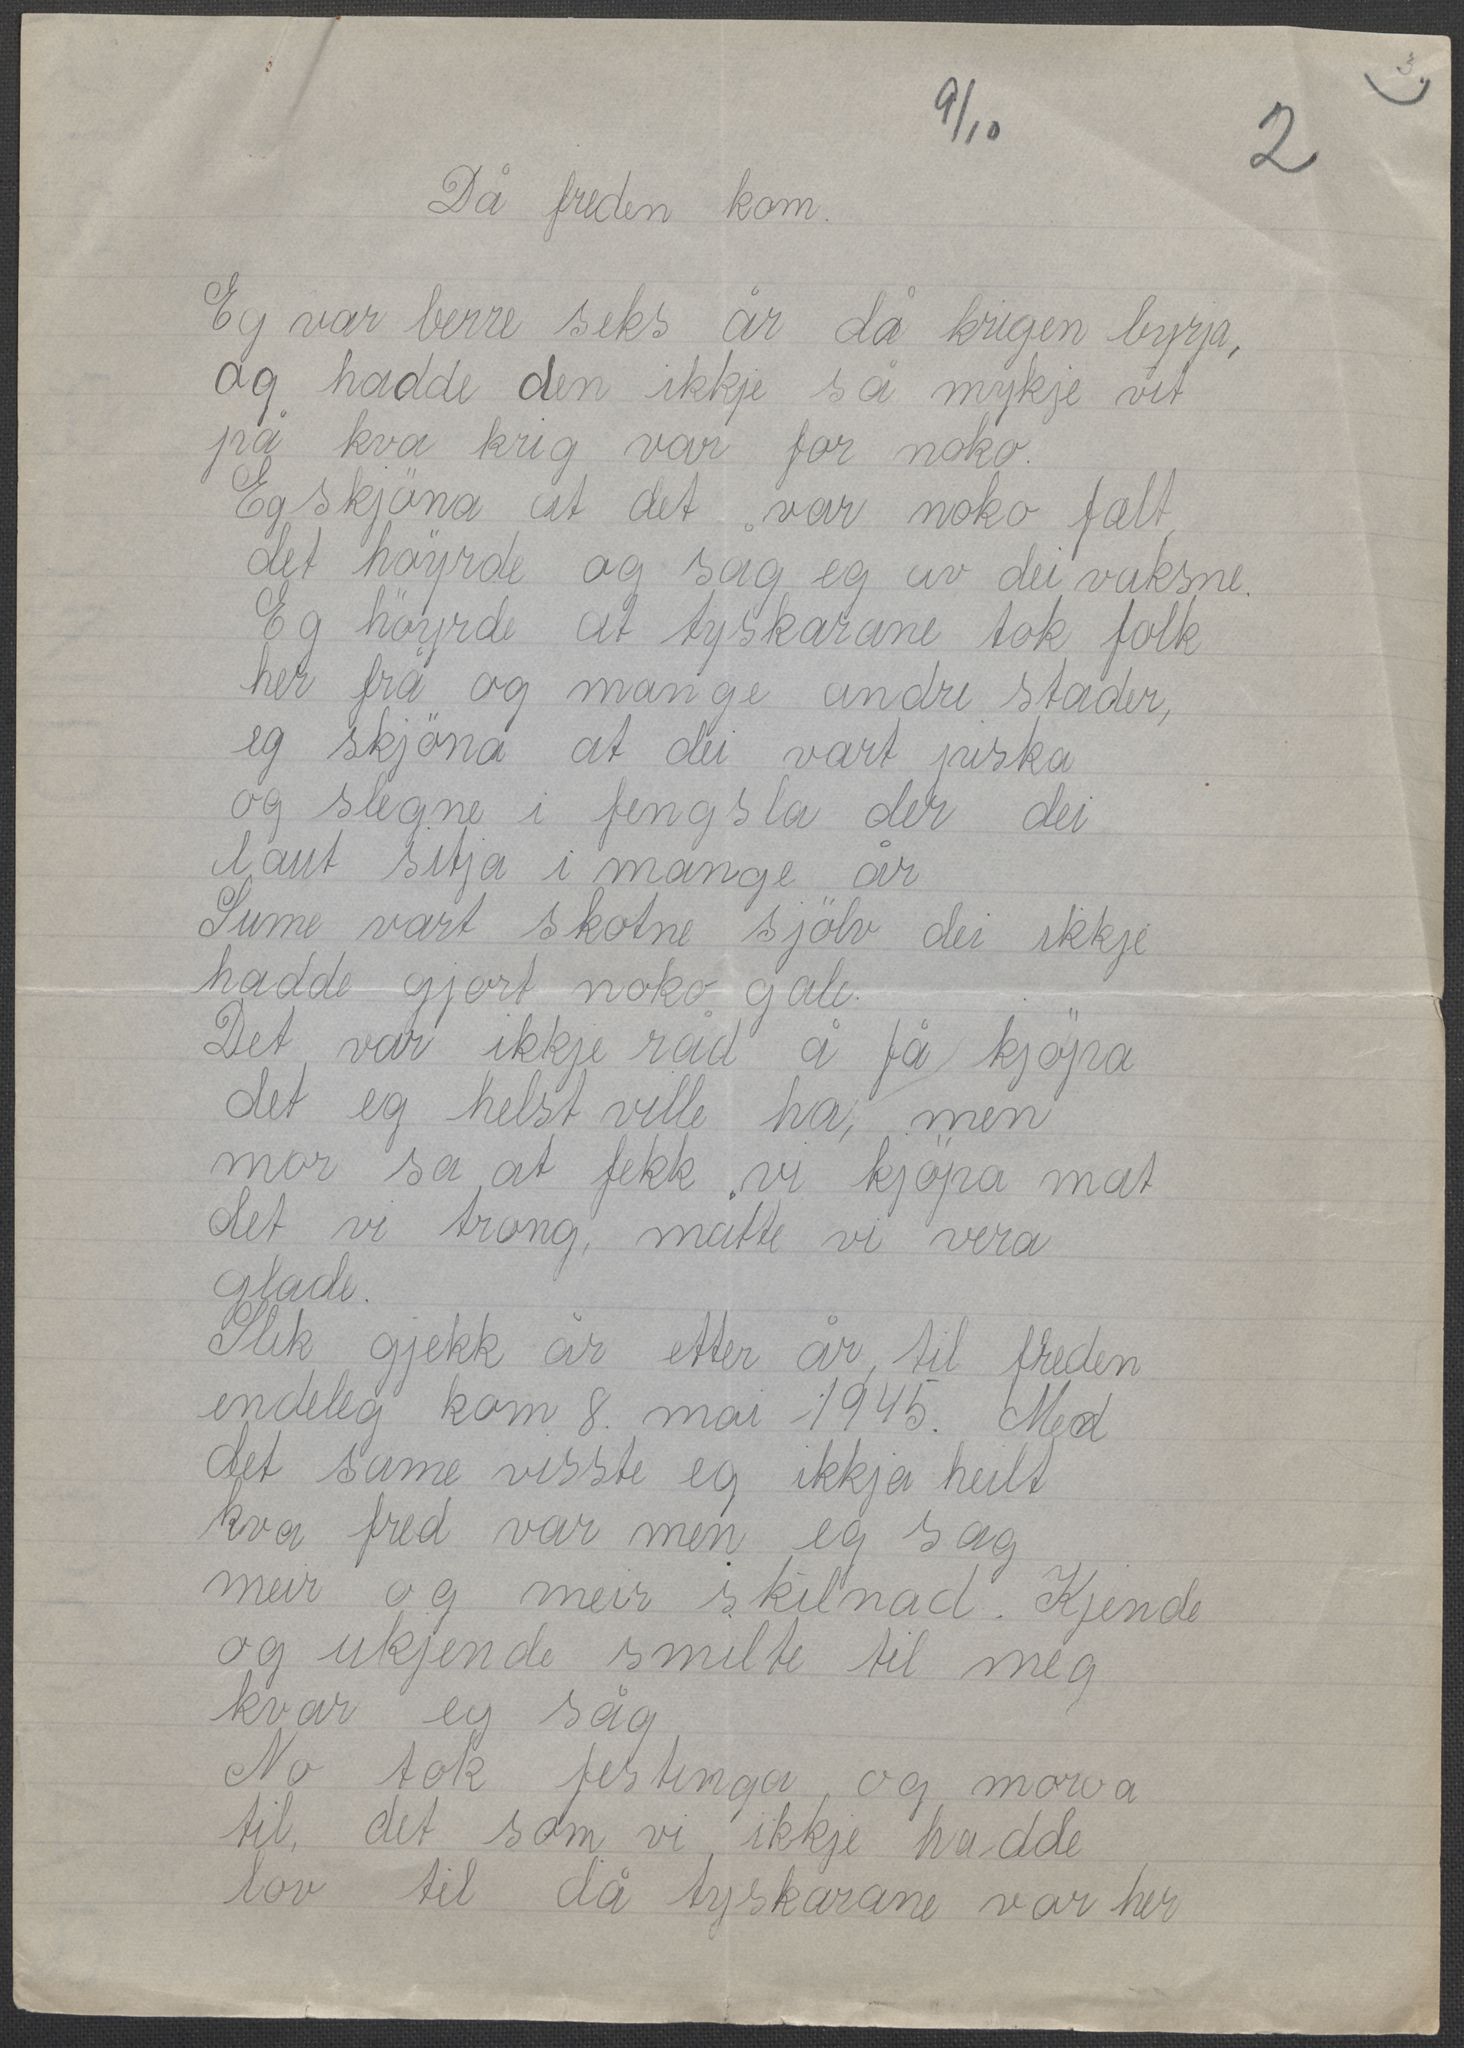 3.
9/10
2
Då freden kom.
Eg var berre seks år då krigen byrja,
og hadde den ikkje så mykje vit
på kva krig var for noko.
Eg skjöna at det var noko fælt,
det höyrde og såg eg av dei vaksne.
Eg höyrde at tyskarane tok folk
her frå og mange andre stader,
eg skjöna at dei vart piska
og slegne i fengsla der dei
laut sitja i mange år
Sume vart skotne sjölv dei ikkje
hadde gjort noko gale.
Det var ikkje råd å få kjöpa
det eg helst ville ha, men
mor sa at fekk vi kjöpa mat
det vi trong, måtte vi vera
glade.
Slik gjekk år etter år, til freden
endeleg kom 8. mai 1945. Med
det same visste eg ikkja heilt
kva fred var men eg sag
meir og meir skilnad. Kjende
og ukjende smilte til meg
kvar eg såg
No tok festinga og moroa
til, det som vi ikkje hadde
lov til då tyskarane var her